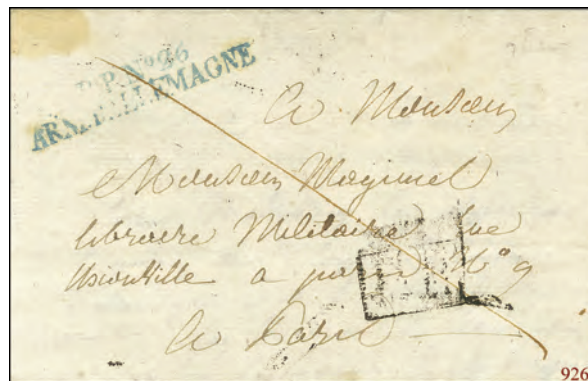 P.P. N° 26
ARM. D'ALLEMAGNE
A Monsieur
Monsieur Magimel
libraire Militaire Rue
Thionville a paris N° 9
A Paris
926